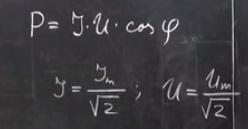 P = I · U · cos φ
I = I_m / √2 ; U = U_m / √2